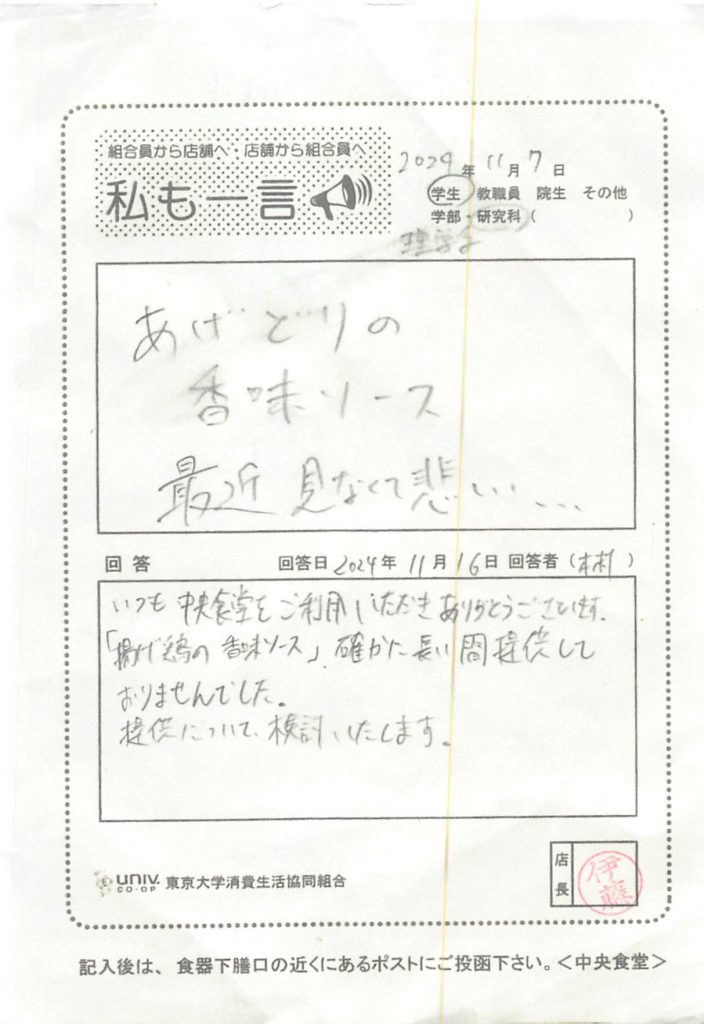 組合員から店舗へ・店舗から組合員へ
私も一言
2024年 11月 7日
学生 教職員 院生 その他
学部・研究科（ ）
理学系
あげどりの
香味ソース
最近 見なくて悲しい....
回答 回答日 2024年 11月 16日 回答者（ ）
いつも 中央食堂をご利用いただきありがとうございます.
「揚げ鶏の 香味ソース」確かに長い間提供して
おりませんでした。
提供について、検討いたします。
UNIV. CO-OP 東京大学消費生活協同組合
店長 伊藤
記入後は、食器下膳口の近くにあるポストにご投函下さい。＜中央食堂＞